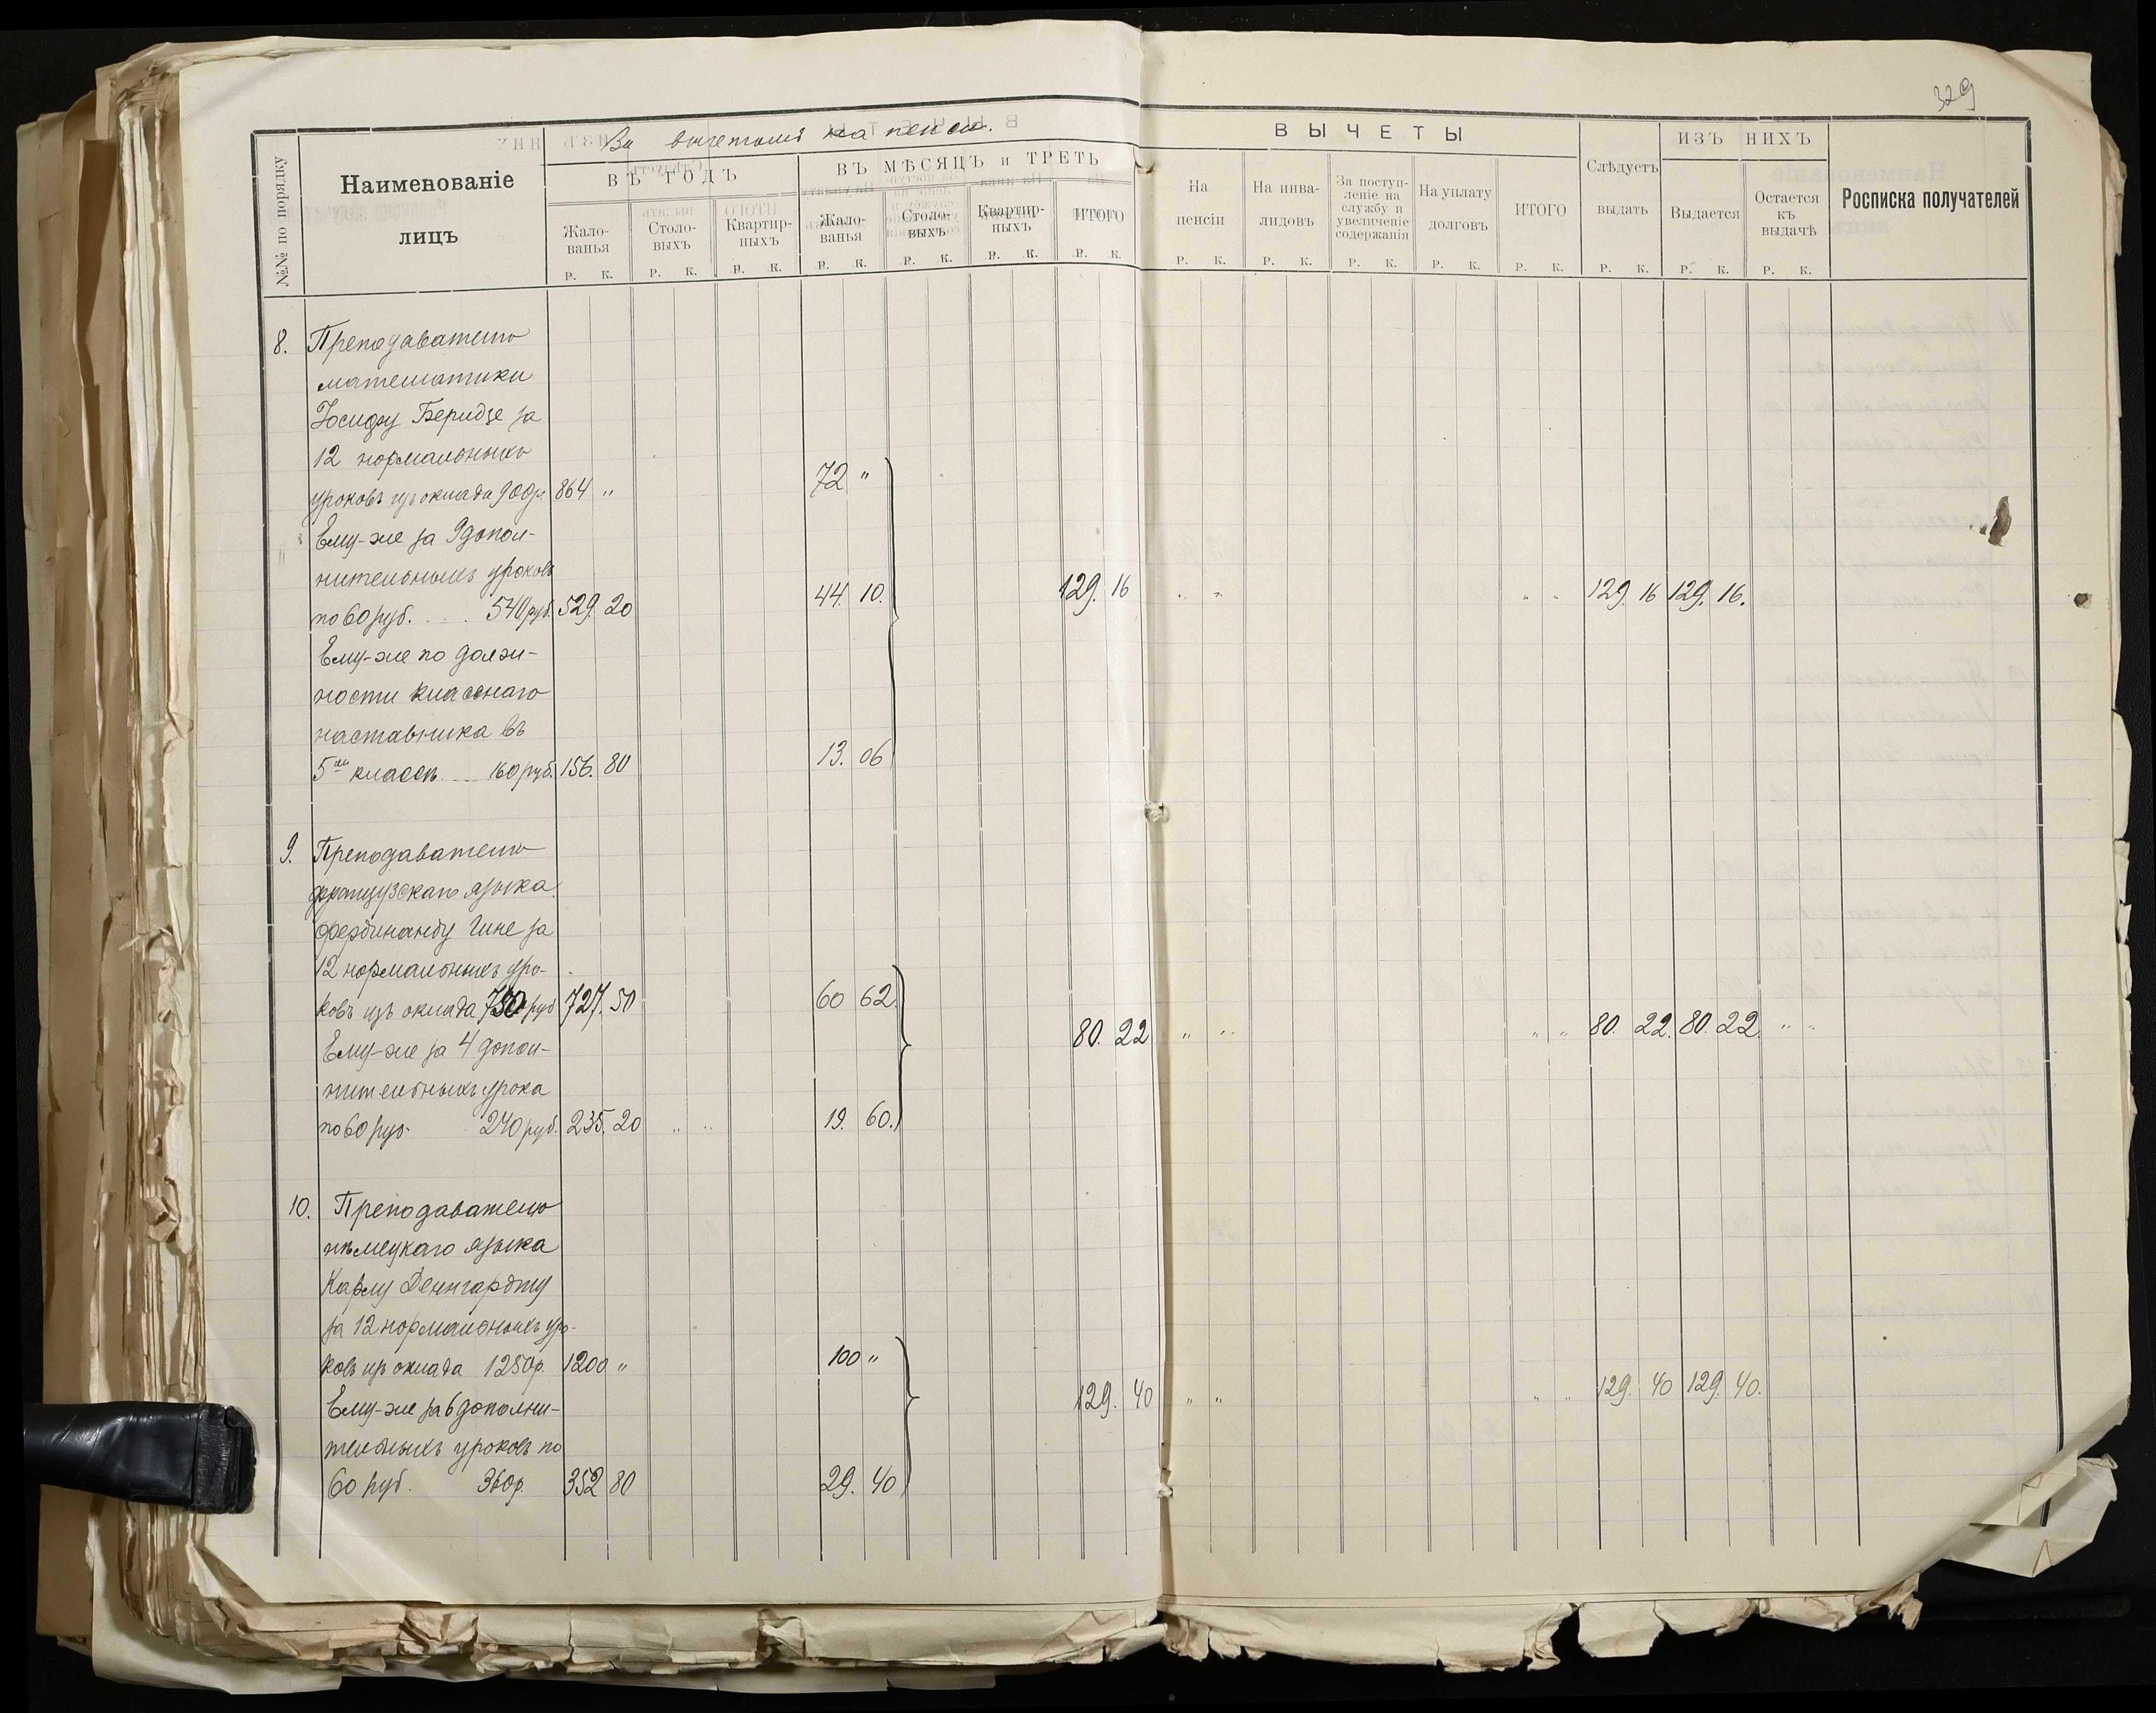 329
№№ по порядку
Наименованіе
лицъ
За вычетомъ на пенсіи.
ВЪ ГОДЪ
ВЪ МѢСЯЦЪ и ТРЕТЬ
Жало-
ванья
Столо-
выхъ
Квартир-
ныхъ
Жало-
ванья
Столо-
выхъ
Квартир-
ныхъ
ИТОГО
Р. К. Р. К. Р. К. Р. К. Р. К. Р. К. Р. К.
ВЫЧЕТЫ
На
пенсіи
На инва-
лидовъ
За поступ-
леніе на
службу и
увеличеніе
содержанія
На уплату
долговъ
ИТОГО
Слѣдуетъ
выдать
ИЗЪ НИХЪ
Выдается
Остается
къ
выдачѣ
Росписка получателей
Р. К. Р. К. Р. К. Р. К. Р. К. Р. К. Р. К. Р. К.
8. Преподавателю
математики
Іосифу Беридзе за
12 нормальныхъ
уроковъ изъ оклада 900р. 864 " 72 "
Ему-же за 9 допол-
нительныхъ уроковъ
по 60 руб. . . . 540 руб. 529. 20 44. 10. 129. 16 " " " " 129. 16 129. 16.
Ему-же по долж-
ности класснаго
наставника въ
5мъ классѣ ... 160 руб. 156. 80 13. 06
9. Преподавателю
французскаго языка
Фердинанду Гине за
12 нормальныхъ уро-
ковъ изъ оклада 750 руб 727. 50 60 62.
80. 22 " " " " 80. 22. 80. 22. " "
Ему-же за 4 допол-
нительныхъ урока
по 60 руб. 240 руб. 235. 20 " " 19. 60.
10. Преподавателю
нѣмецкаго языка
Карлу Деннгардту
за 12 нормальныхъ уро-
ковъ изъ оклада 1250р. 1200 " 100 "
Ему-же за 6 дополни- 129. 40 " " " " 129. 40 129. 40.
тельныхъ уроковъ по
60 руб. 360р. 352 80 29. 40